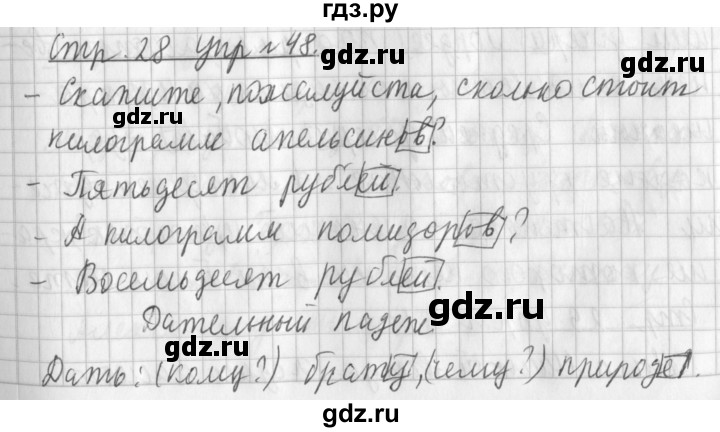 гдз.ру
Стр. 28 упр № 48.
gdz.ru
gdz.ru
- Скажите, пожалуйста, сколько стоит
gdz.ru
килограмм апельсинов?
gdz.ru
- Пятьдесят рублей.
gdz.ru
- А килограмм помидоров?
- Восемьдесят рублей.
gdz.ru
Дательный падеж
gdz.ru
Дать: (кому?) брату, (чему?) природе.
gdz.ru
gdz.ru